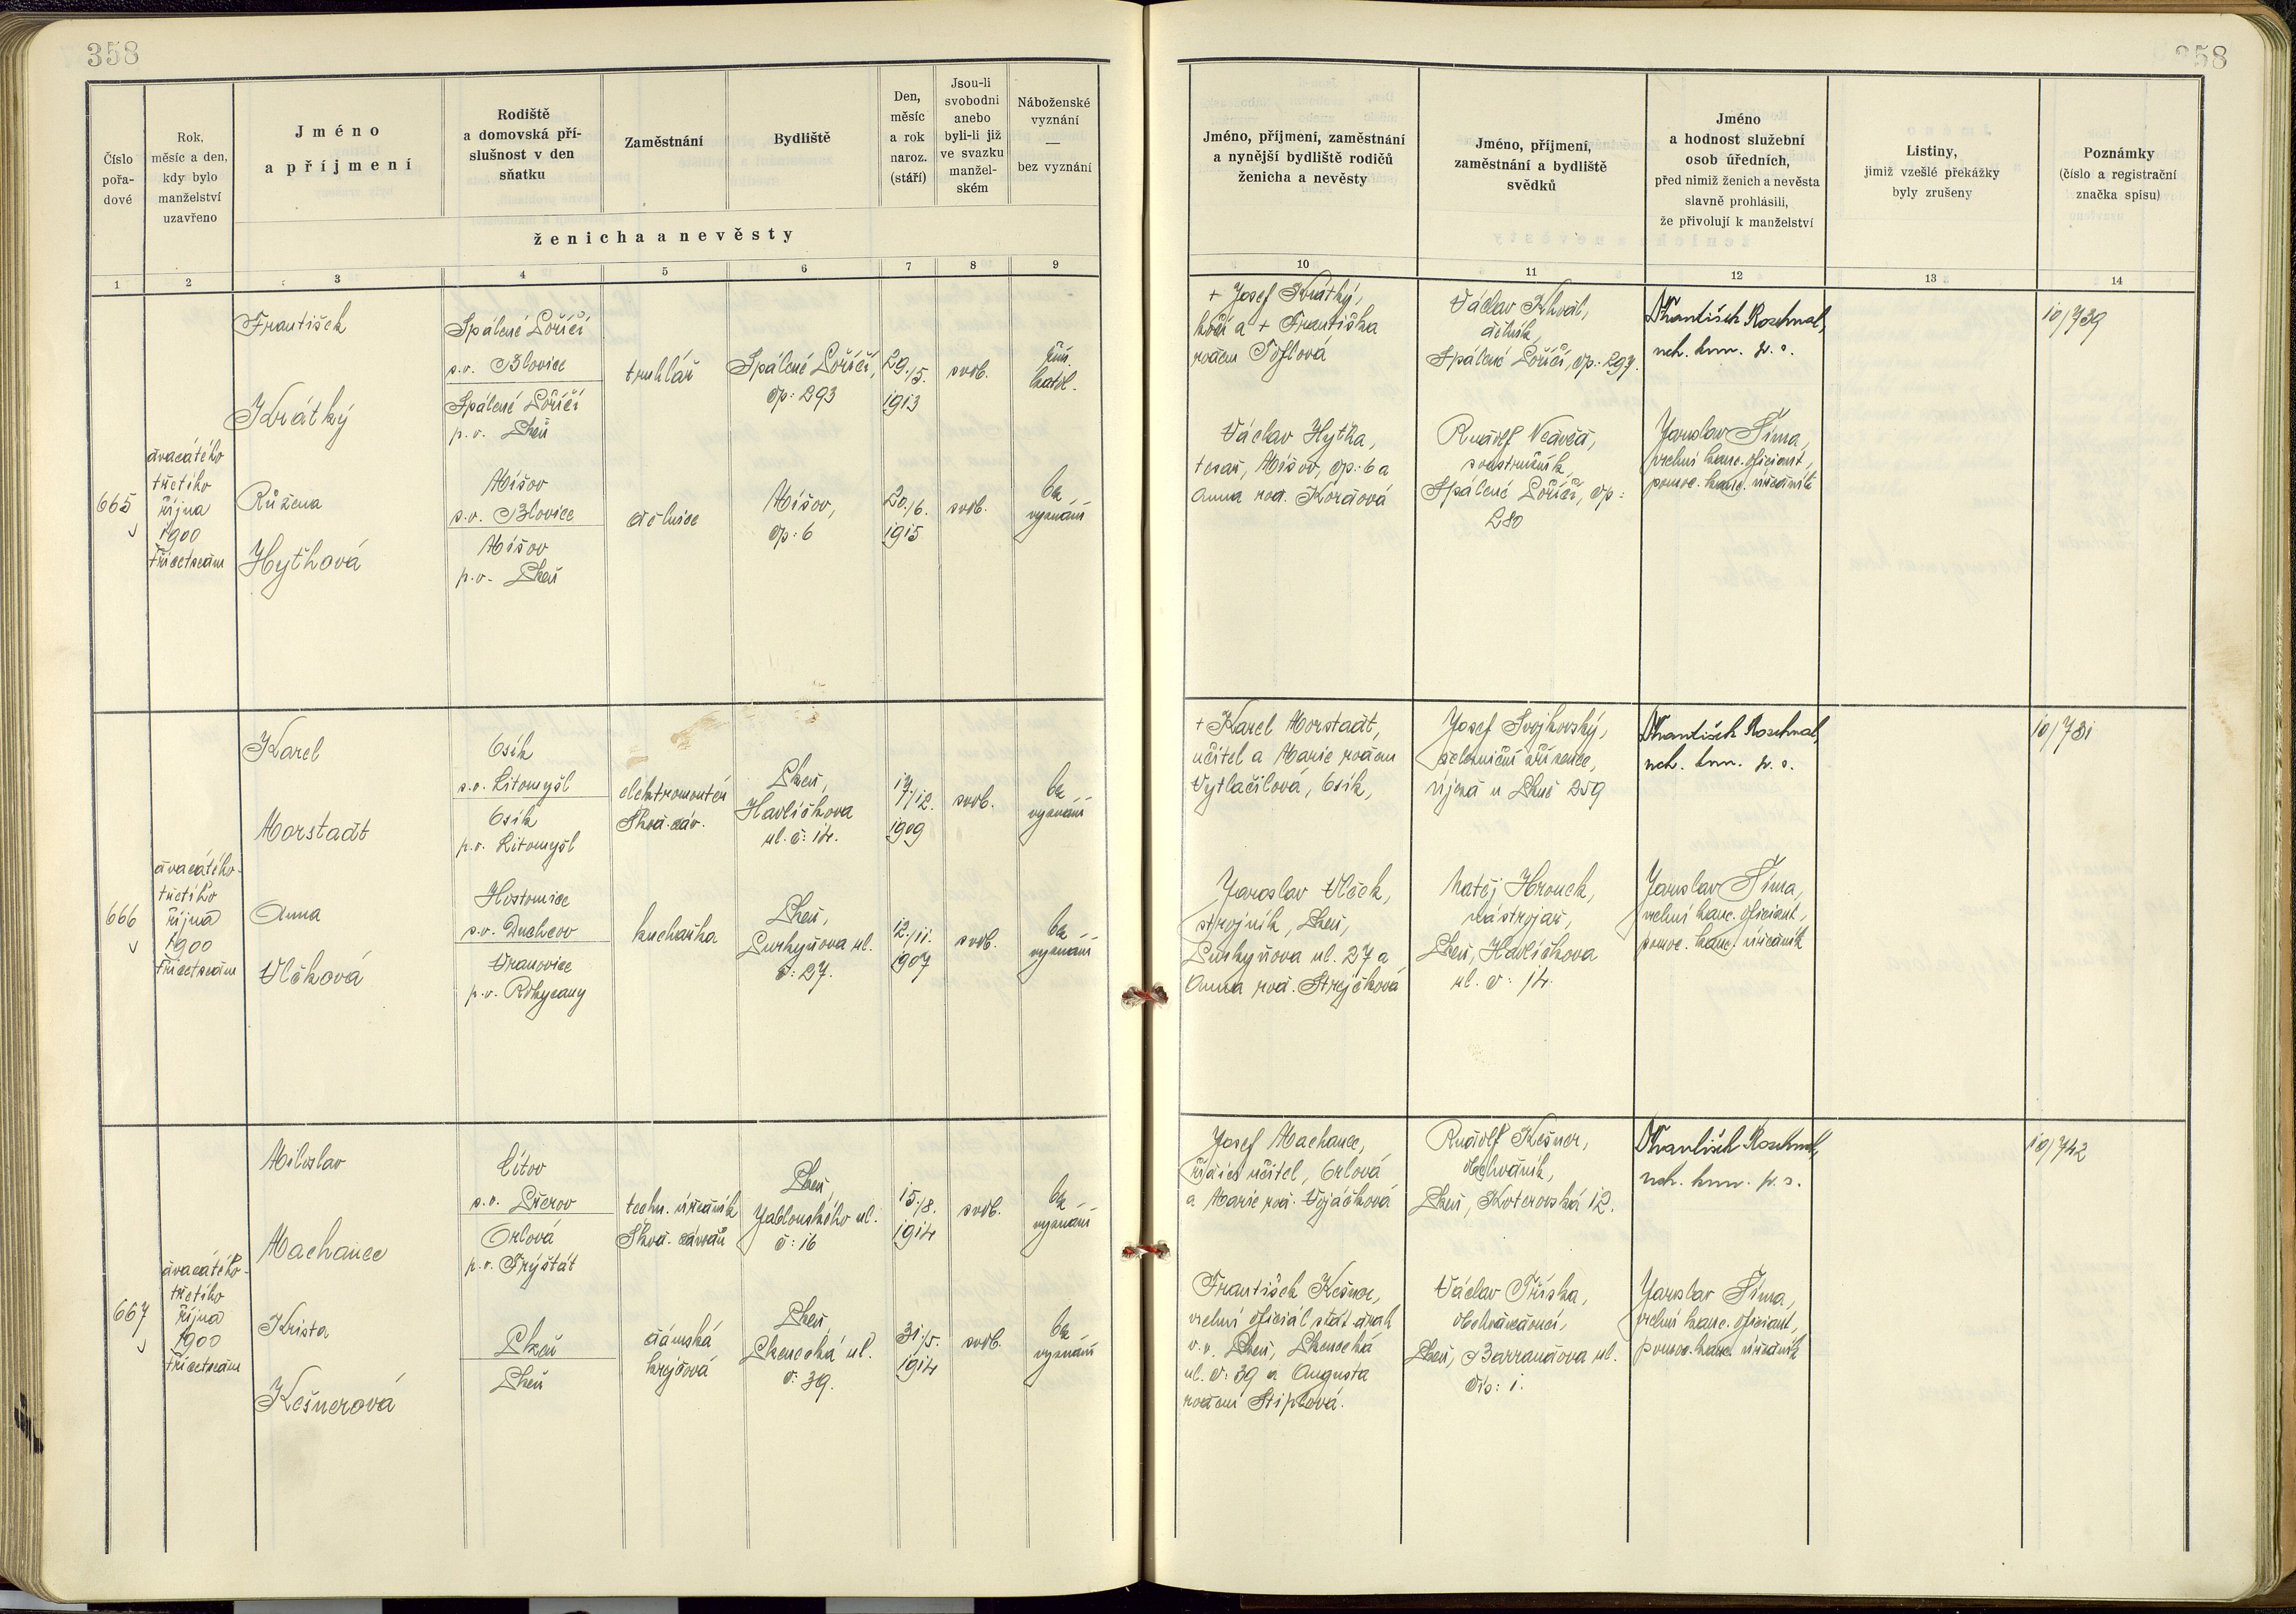 358
358
Číslo pořa-dové
Rok, měsíc a den, kdy bylo manželství uzavřeno
Jméno a příjmení
Rodiště a domovská pří-slušnost v den sňatku
Zaměstnání
Bydliště
Den, měsíc a rok naroz. (stáří)
Jsou-li svobodni anebo byli-li již ve svazku manžel-ském
Náboženské vyznání — bez vyznání
ženicha a nevěsty
1 2 3 4 5 6 7 8 9
Jméno, příjmení, zaměstnání
a nynější bydliště rodičů
ženicha a nevěsty
Jméno, příjmení,
zaměstnání a bydliště
svědků
Jméno
a hodnost služební
osob úředních,
před nimiž ženich a nevěsta
slavně prohlásili,
že přivolují k manželství
Listiny,
jimiž vzešlé překážky
byly zrušeny
Poznámky
(číslo a registrační
značka spisu)
10 11 12 13 14
665
dvacátého
třetího
října
1900
třicetsedm
František
Krátký
Spálené Poříčí
s.o. Blovice
Spálené Poříčí
p.o. Plzeň
truhlář
Spálené Poříčí,
čp: 293
29./5.
1913
svob.
řím.
katol.
Růžena
Hyťhová
Míšov
s.o. Blovice
Míšov
p.o. Plzeň
dělnice
Míšov,
čp: 6
20./6.
1915
svob.
bez
vyznání
+ Josef Krátký,
kočí a + Františka
rozen
Václav
dělník,
Spálené Poříčí, čp: 297.
František
10/739
Václav Hyťha,
tesař, Míšov, čp: 6 a
Anna roz. Kordová
Rudolf
soustružník,
Spálené Poříčí, čp:
280
Jaroslav Tíma,
vrchní kanc. oficiant,
pomoc. kanc. úředník
666
dvacátého-
třetího
října
1900
třicetsedm
Karel
Morstadt
Osík
s.o. Litomyšl
Osík
p.o. Litomyšl
elektromontér
Škod. záv.
Plzeň,
Havlíčkova
ul. č: 14.
/12.
1909
svob.
bez
vyznání
Anna
Vlčková
Hostomice
s.o. Duchcov
Vranovice
p.o. Rokycany
kuchařka
Plzeň,
Purkyňova ul.
č: 27.
12./11.
1907
svob.
bez
vyznání
+ Karel Morstadt,
učitel a Marie rozen
Vytlačilová, Osík,
Josef Svojkovský,
železniční zřízenec,
Újezd u Plzně 259
František
10/781
Jaroslav Vlček,
strojník, Plzeň,
Purkyňova ul. 27 a
Anna roz. Strejčková
Matěj Hrouch,
nástrojař,
Plzeň, Havlíčkova
ul. č: 14.
Jaroslav Tíma,
vrchní kanc. oficiant,
pomoc. kanc. úředník
667
dvacátého-
třetího
října
1900
třicetsedm
Miloslav
Machanec
Citov
s.o. Přerov
Orlová
p.o. Fryštát
techn. úředník
Škod. závodů
Plzeň,
Jablonského ul.
č: 16
15./8.
1914
svob.
bez
vyznání
Krista
Kešnerová
Plzeň
Plzeň
dámská
krejčová
Plzeň,
Plzenecká ul.
č: 39.
31./5.
1914
svob.
bez
vyznání
Josef Machanec,
řídící učitel, Orlová
a Marie roz. Vojáčková
Rudolf Kešner,
obchodník,
Plzeň, Koterovská 12.
František
10/742
František Kešner,
vrchní oficiál stát. drah
v.v. Plzeň, Plzenecká
ul. č: 39 a Augusta
rozen Stiplová.
Václav Tříska,
obchodvedoucí,
Plzeň, Barrandova ul.
čís: 1.
Jaroslav Tíma,
vrchní kanc. oficiant,
pomoc. kanc. úředník